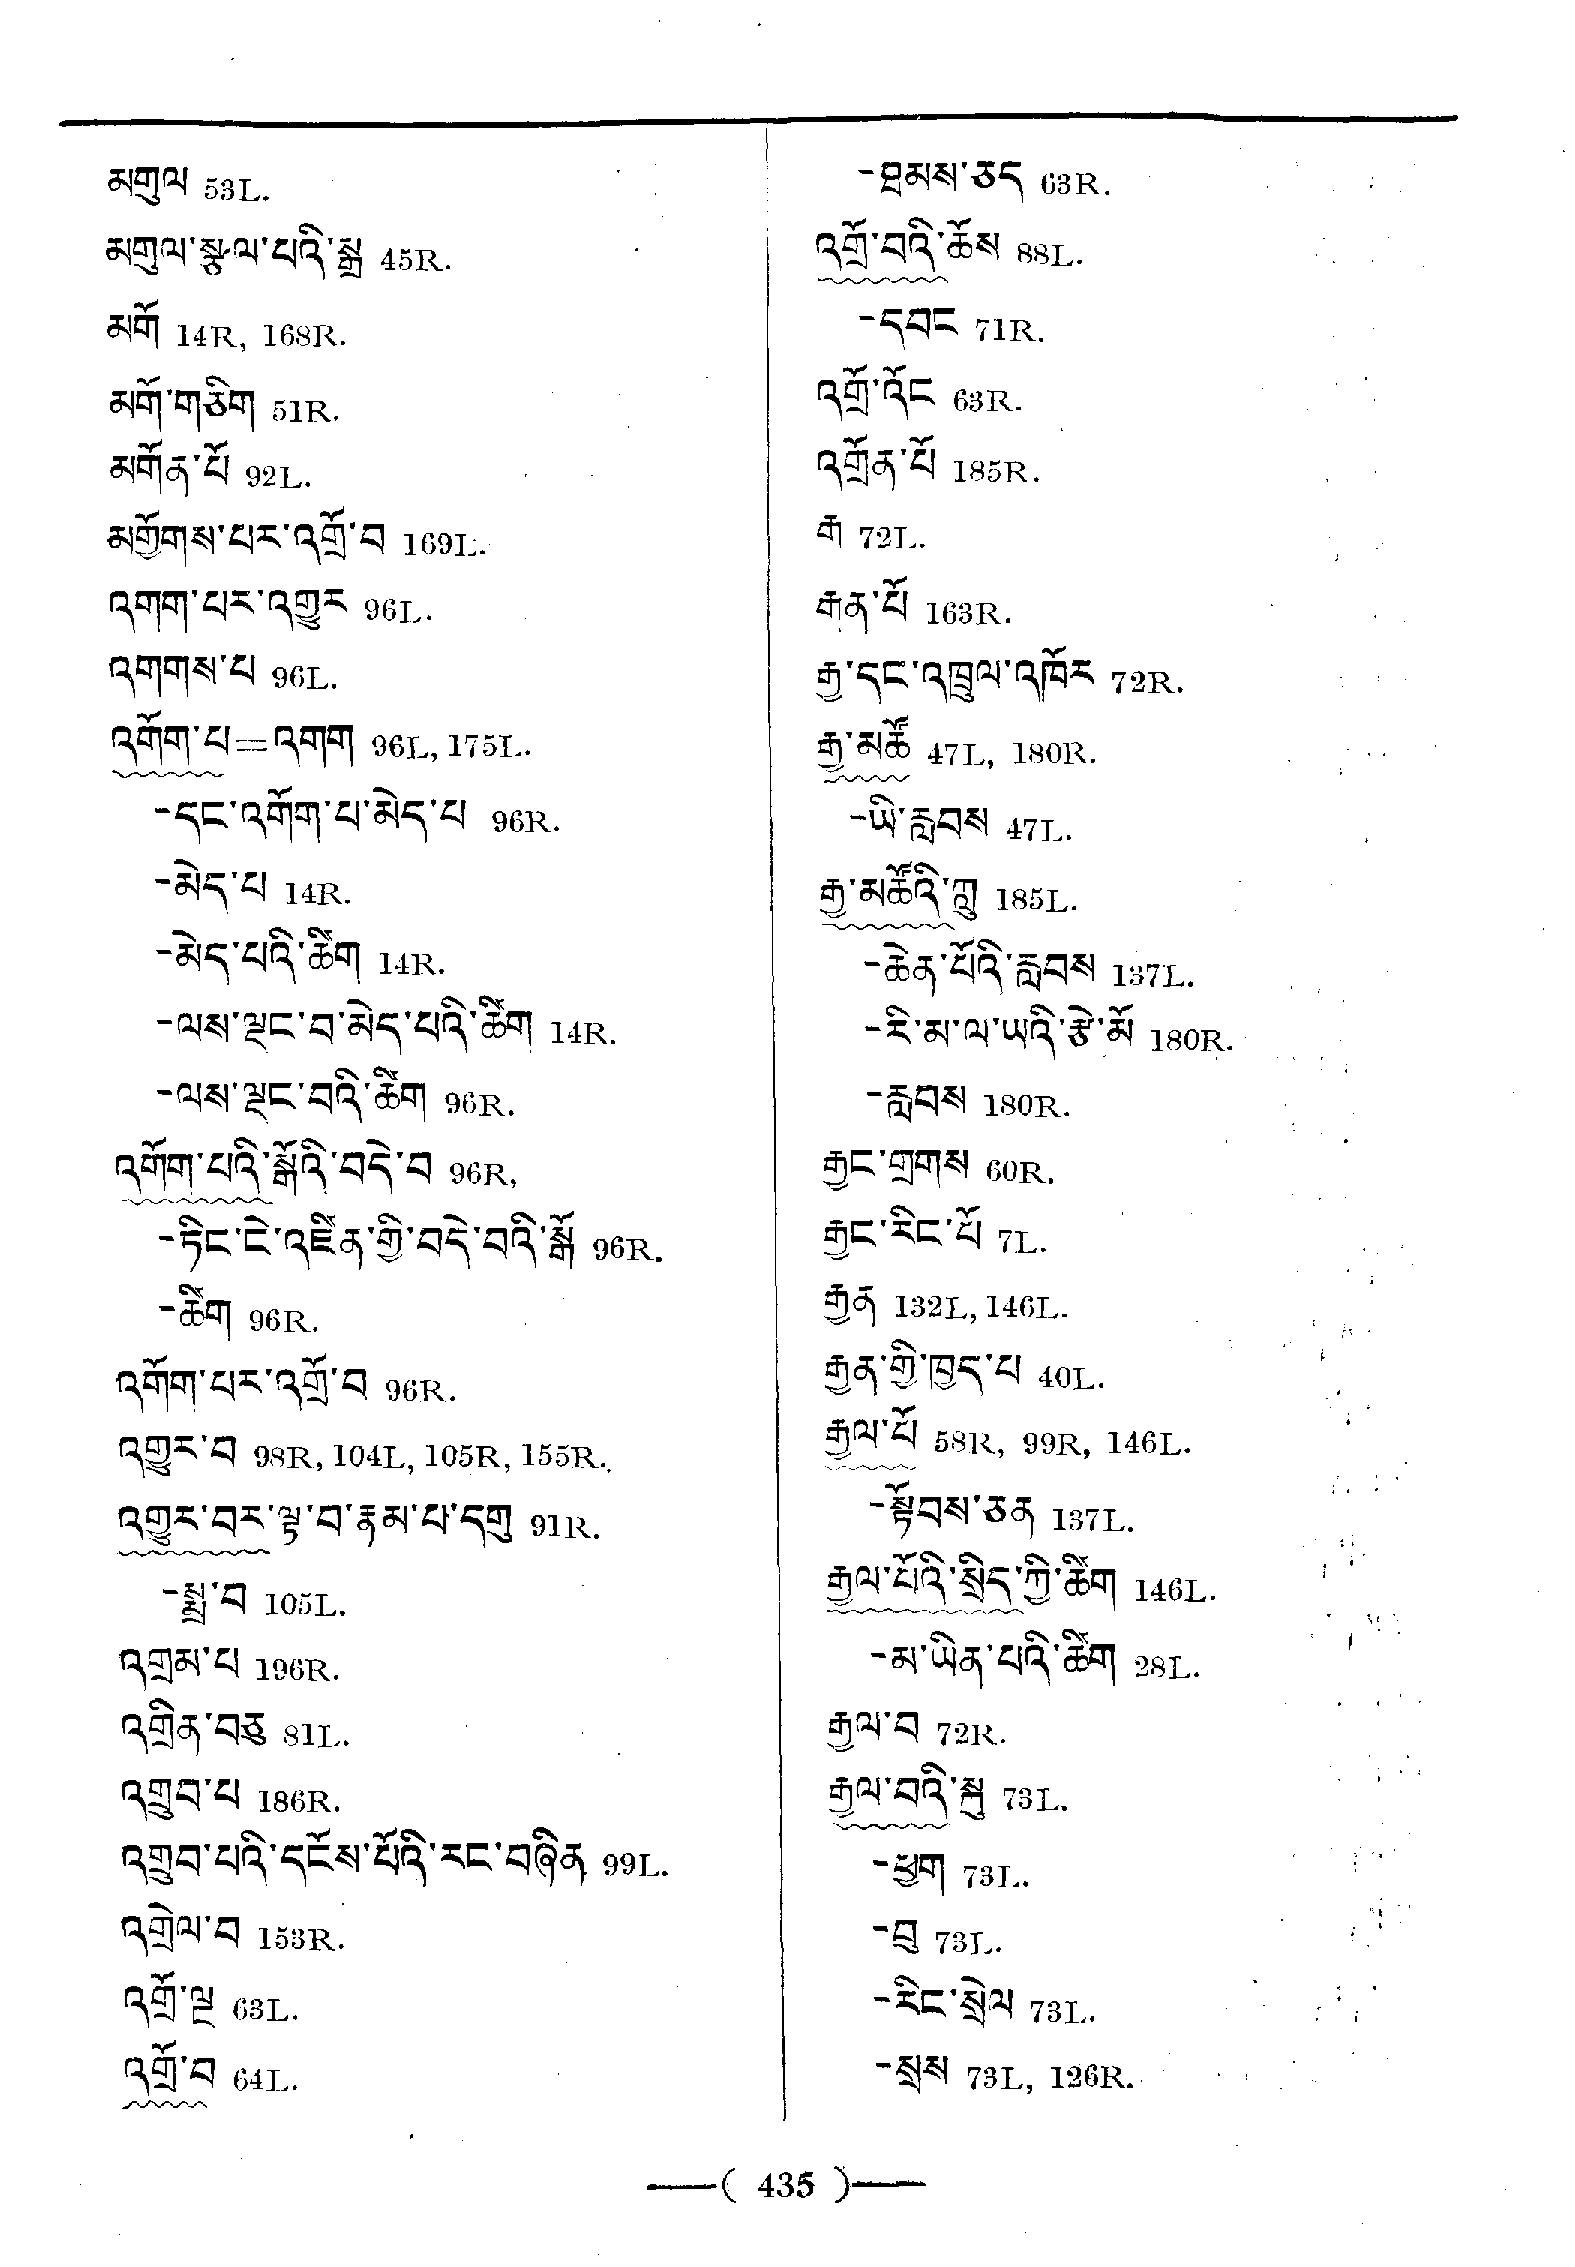 མགུལ 53L.
མགུལ་སྙལ་པའི་སྒྲ 45R.
མགོ 14R, 168R.
མགོ་གཅིག 51R.
མགོན་པོ 92L.
མགྱོགས་པར་འགྲོ་བ 169L.
འགག་པར་འགྱུར 96L.
འགགས་པ 96L.
འགོག་པ=འགག 96L, 175L.
-དང་འགོག་པ་མེད་པ 96R.
-མེད་པ 14R.
-མེད་པའི་ཚིག 14R.
-ལས་ལྡང་བ་མེད་པའི་ཚིག 14R.
-ལས་ལྡང་བའི་ཚིག 96R.
འགོག་པའི་སྒོའི་བདེ་བ 96R,
-ཏིང་ངེ་འཛིན་གྱི་བདེ་བའི་སྒོ 96R.
-ཚིག 96R.
འགོག་པར་འགྲོ་བ 96R.
འགྱུར་བ 98R, 104L, 105R, 155R.
འགྱུར་བར་ལྟ་བ་རྣམ་པ་དགུ 91R.
-སྨྲ་བ 105L.
འགྲམ་པ 196R.
འགྲིན་བཅུ 81L.
འགྲུབ་པ 186R.
འགྲུབ་པའི་དངོས་པོའི་རང་བཞིན 99L.
འགྲེལ་བ 153R.
འགྲོ་ལྔ 63L.
འགྲོ་བ 64L.
-ཐམས་ཅད 63R.
འགྲོ་བའི་ཆོས 88L.
-དབང 71R.
འགྲོ་འོང 63R.
འགྲོན་པོ 185R.
རྒ 72L.
རྒན་པོ 163R.
རྒྱ་དང་འཁྲུལ་འཁོར 72R.
རྒྱ་མཚོ 47L, 180R.
-ཡི་རླབས 47L.
རྒྱ་མཚོའི་ཀླུ 185L.
-ཆེན་པོའི་རླབས 137L.
-རི་མ་ལ་ཡའི་རྩེ་མོ 180R.
-རླབས 180R.
རྒྱང་གྲགས 60R.
རྒྱང་རིང་པོ 7L.
རྒྱན 132L, 146L.
རྒྱན་གྱི་ཁྱད་པ 40L.
རྒྱལ་པོ 58R, 99R, 146L.
-སྟོབས་ཅན 137L.
རྒྱལ་པོའི་སྲིད་ཀྱི་ཚིག 146L.
-མ་ཡིན་པའི་ཚིག 28L.
རྒྱལ་བ 72R.
རྒྱལ་བའི་སྐུ 73L.
-ཕྱག 73L.
-བྲུ 73L.
-རིང་སྲེལ 73L.
-སྲས 73L, 126R.
( 435 )